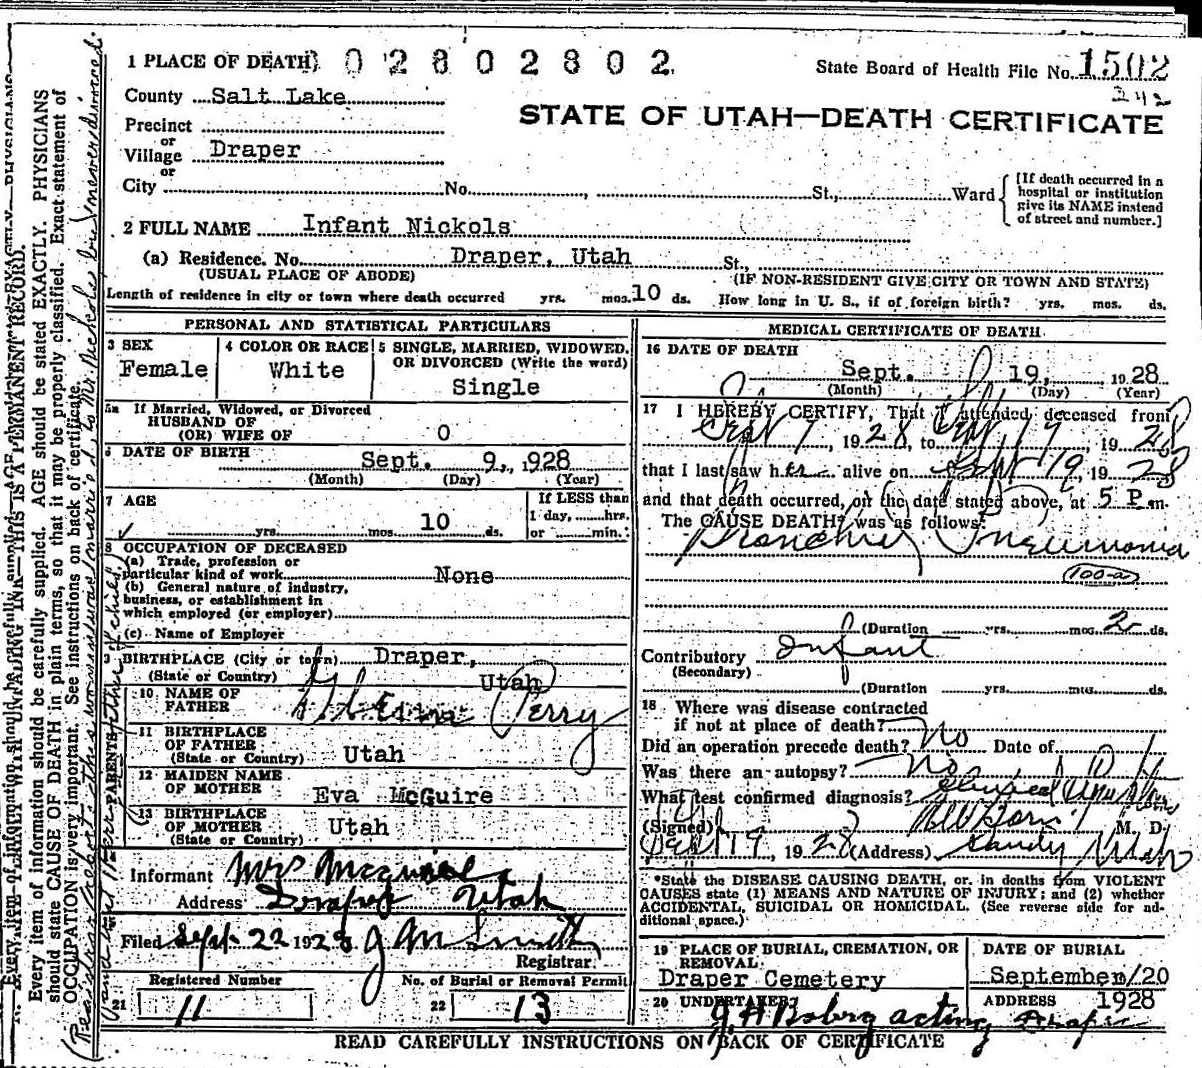 1 PLACE OF DEATH 0 2 8 0 2 8 0 2
State Board of Health File No. 1502
242
County Salt Lake
STATE OF UTAH—DEATH CERTIFICATE
Precinct
or
Village Draper
or
City No. St., Ward
[If death occurred in a
hospital or institution
give its NAME instead
of street and number.]
2 FULL NAME Infant Nickols
(a) Residence. No. Draper, Utah St.,
(USUAL PLACE OF ABODE) (IF NON-RESIDENT GIVE CITY OR TOWN AND STATE)
Length of residence in city or town where death occurred yrs. mos. 10 ds. How long in U. S., if of foreign birth? yrs. mos. ds.
PERSONAL AND STATISTICAL PARTICULARS
3 SEX
Female
4 COLOR OR RACE
White
5 SINGLE, MARRIED, WIDOWED,
OR DIVORCED (Write the word)
Single
5a If Married, Widowed, or Divorced
HUSBAND OF
(OR) WIFE OF 0
6 DATE OF BIRTH
Sept. 9, 1928
(Month) (Day) (Year)
7 AGE
yrs. mos. 10 ds.
If LESS than
1 day, hrs.
or min.
8 OCCUPATION OF DECEASED
(a) Trade, profession or
particular kind of work None
(b) General nature of industry,
business, or establishment in
which employed (or employer)
(c) Name of Employer
9 BIRTHPLACE (City or town) Draper,
(State or Country) Utah
PARENTS
10 NAME OF
FATHER Perry
11 BIRTHPLACE
OF FATHER
(State or Country) Utah
12 MAIDEN NAME
OF MOTHER Eva McGuire
13 BIRTHPLACE
OF MOTHER
(State or Country) Utah
Informant Mrs McGuire
Address Draper Utah
Filed Sept 22 1928 J M Smith
Registrar.
Registered Number No. of Burial or Removal Permit
21 11 22 13
MEDICAL CERTIFICATE OF DEATH
16 DATE OF DEATH
Sept. 19, 1928
(Month) (Day) (Year)
17 I HEREBY CERTIFY, That I attended deceased from
Sept 9, 1928, to Sept 19, 1928
that I last saw her alive on Sept 19, 1928
and that death occurred, on the date stated above, at 5 P.m.
The CAUSE DEATH was as follows:
Bronchial Pneumonia
100-a
(Duration yrs. mos. 2 ds.
Contributory Infant
(Secondary)
(Duration yrs. mos. ds.
18 Where was disease contracted
if not at place of death?
Did an operation precede death? No Date of
Was there an autopsy? No
What test confirmed diagnosis?
(Signed) M. D.
Sept 19, 1928 (Address) Sandy Utah
*State the DISEASE CAUSING DEATH, or in deaths from VIOLENT
CAUSES state (1) MEANS AND NATURE OF INJURY; and (2) whether
ACCIDENTAL, SUICIDAL OR HOMICIDAL. (See reverse side for ad-
ditional space.)
19 PLACE OF BURIAL, CREMATION, OR
REMOVAL
Draper Cemetery
DATE OF BURIAL
September/20
1928
20 UNDERTAKER
acting
ADDRESS
Draper
READ CAREFULLY INSTRUCTIONS ON BACK OF CERTIFICATE
N. B.—WRITE PLAINLY WITH UNFADING INK—THIS IS A PERMANENT RECORD.
Every item of information should be carefully supplied. AGE should be stated EXACTLY. PHYSICIANS
should state CAUSE OF DEATH in plain terms, so that it may be properly classified. Exact statement of
OCCUPATION is very important. See instructions on back of certificate.